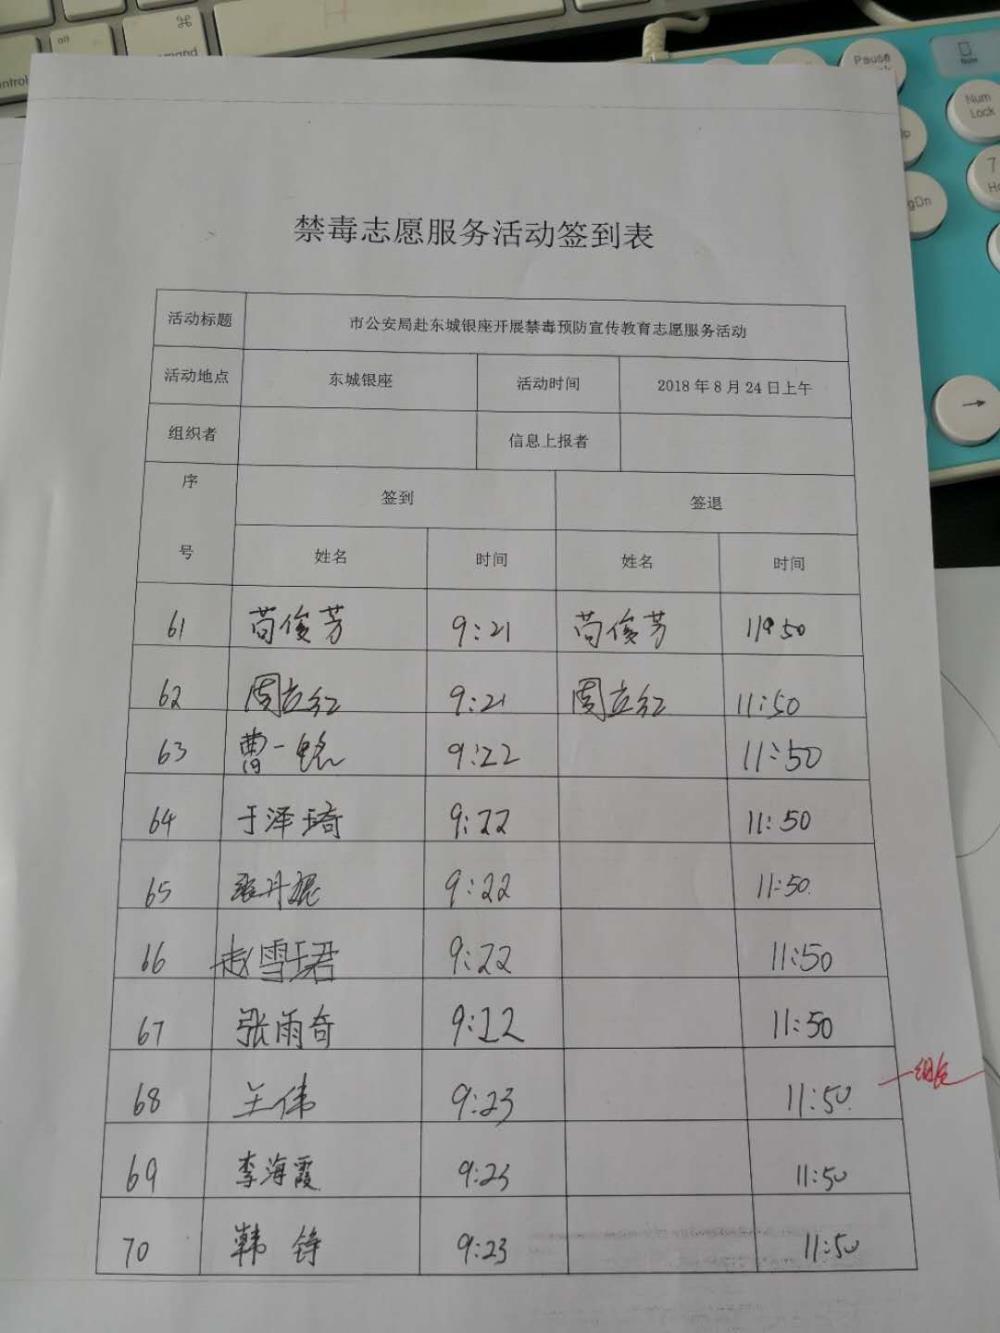 ⌘
control
command
Pause
Num
Lock
7
gDn
→
禁毒志愿服务活动签到表
活动标题 市公安局赴东城银座开展禁毒预防宣传教育志愿服务活动
活动地点 东城银座 活动时间 2018年8月24日上午
组织者 信息上报者
序号 签到 签退
姓名 时间 姓名 时间
61 苟俊芳 9:21 苟俊芳 11:50
62 周立红 9:21 周立红 11:50
63 曹一铭 9:22 11:50
64 于泽琦 9:22 11:50
65 张丹 9:22 11:50
66 赵雪君 9:22 11:50
67 张雨奇 9:22 11:50
68 王伟 9:23 11:50 组长
69 李海霞 9:23 11:50
70 韩铮 9:23 11:50